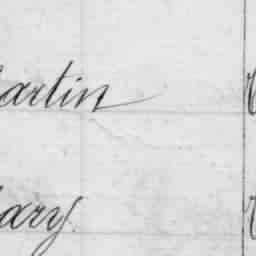 artin
ary.